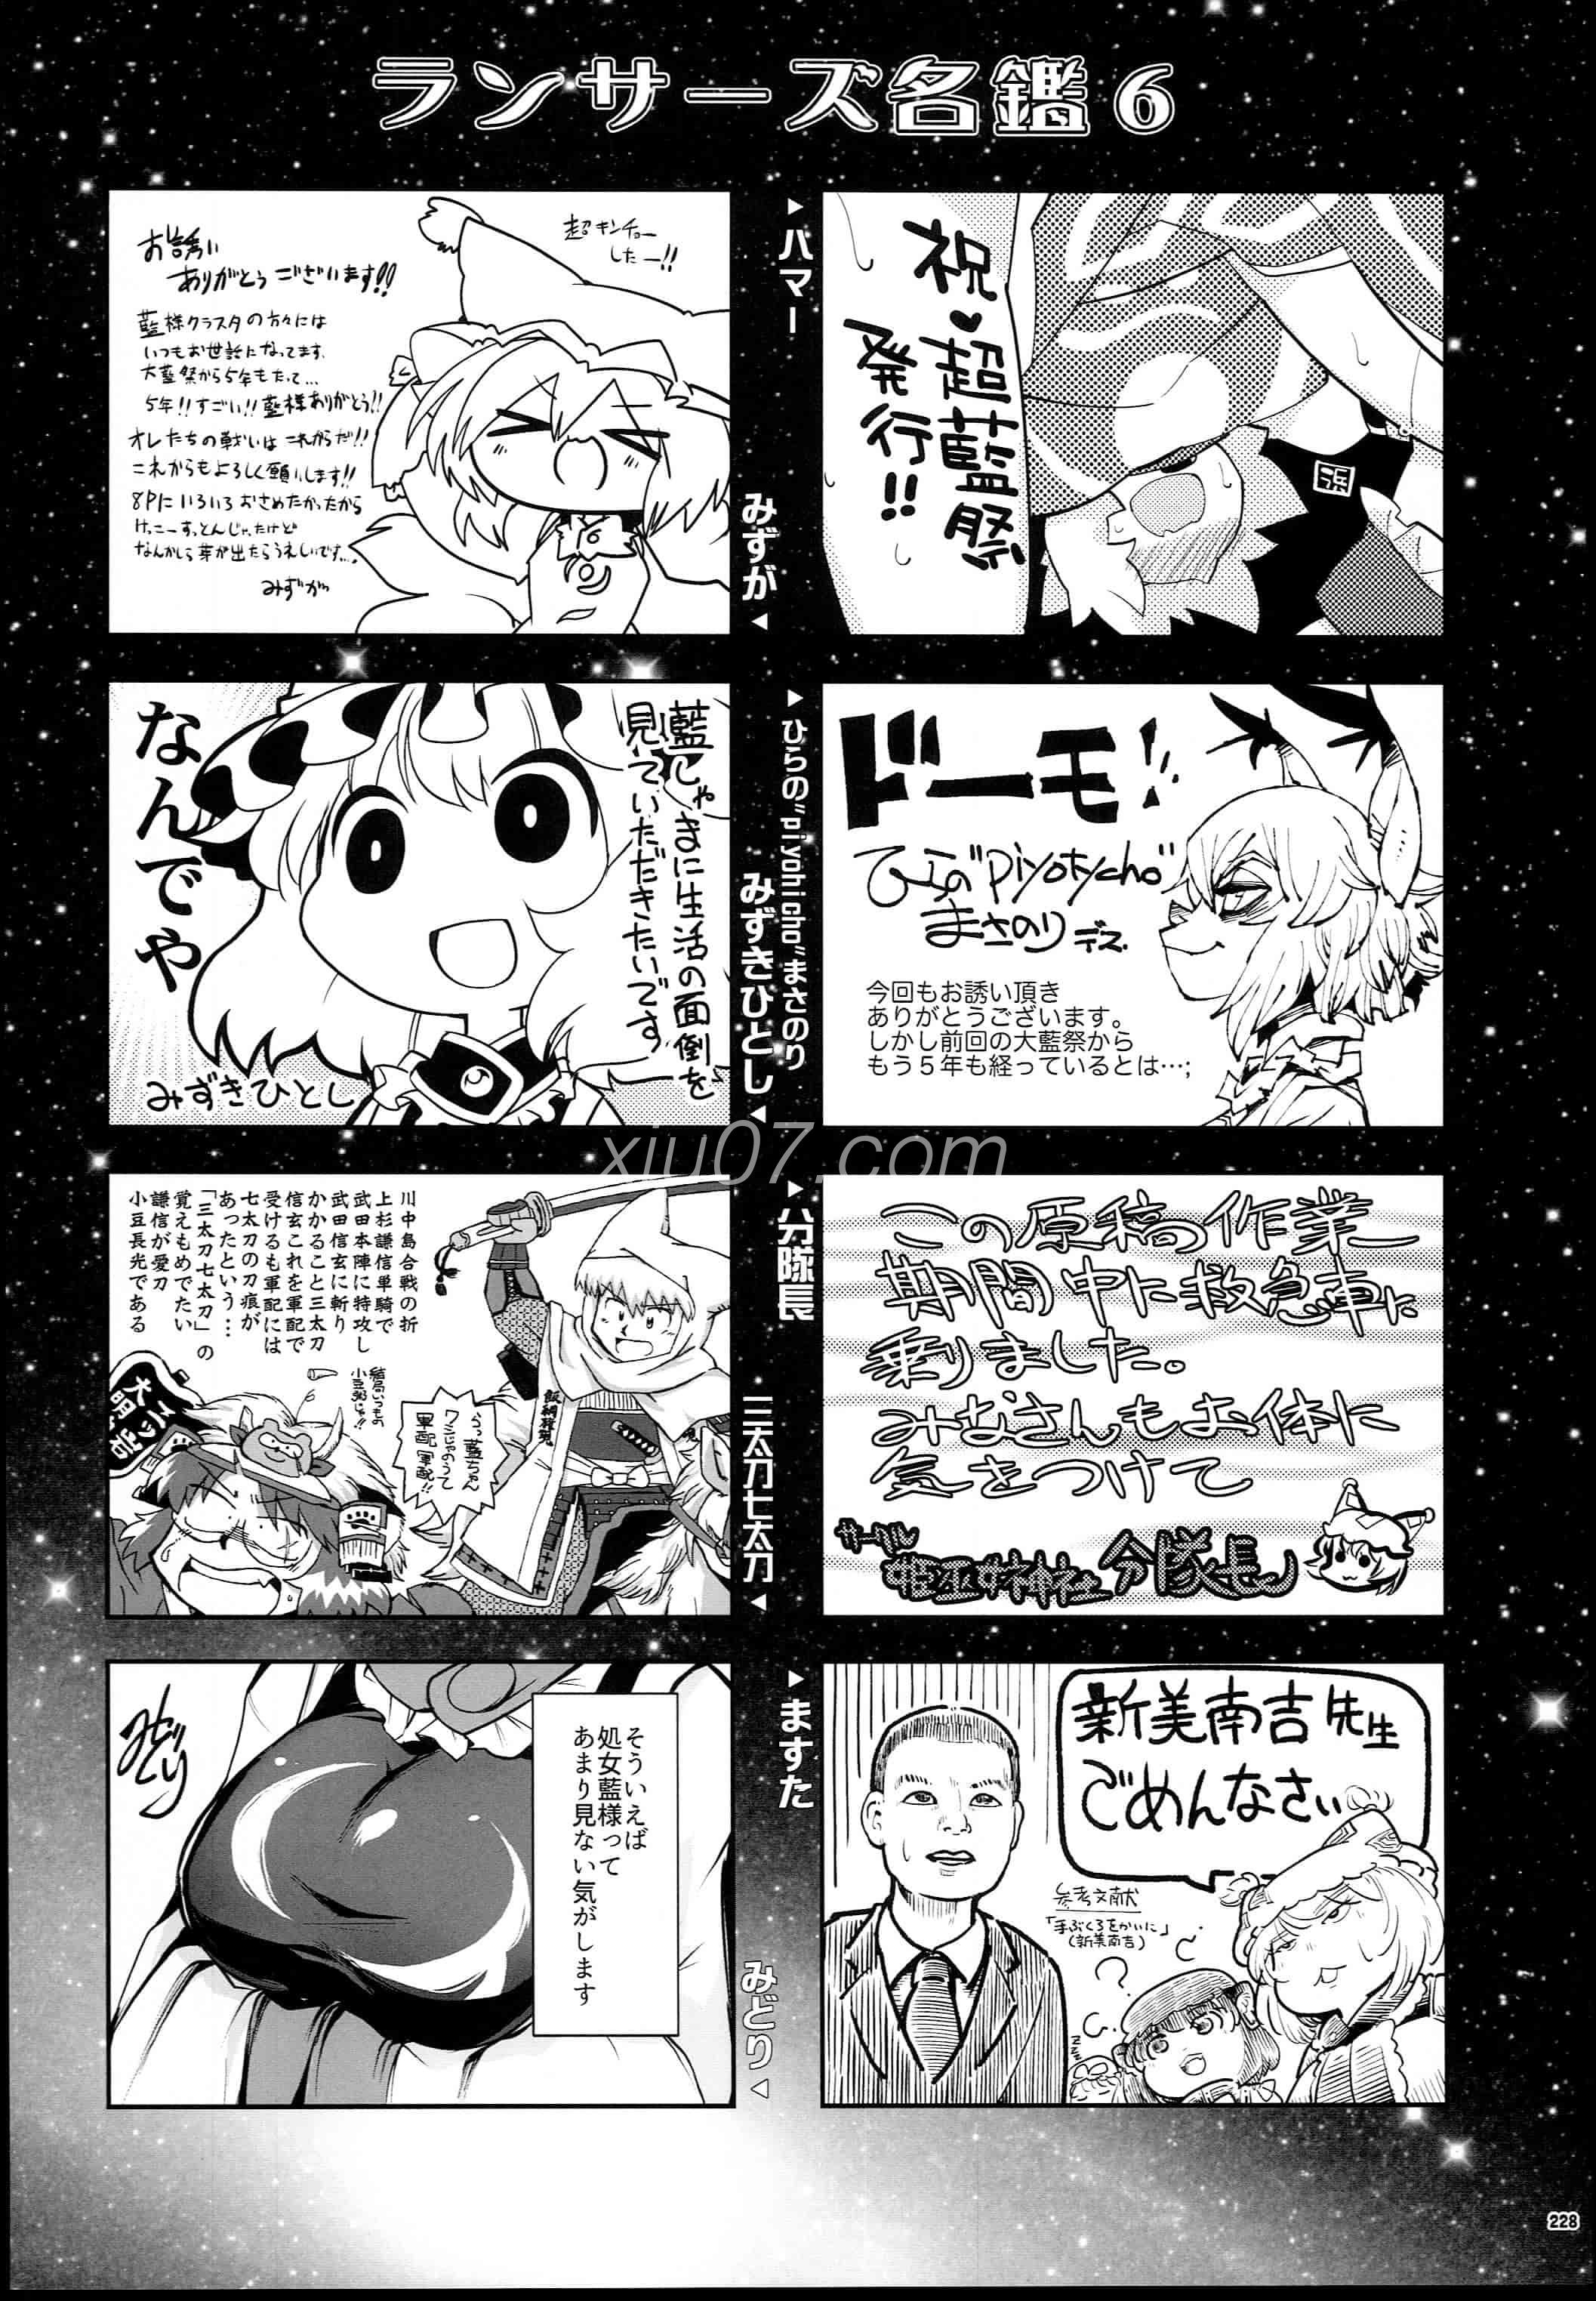 ランサーズ名鑑 6
▶ハマー
祝♥超藍祭
発行!!
浜
みずが◀
超キンチョー
したー!!
お誘い
ありがとうございます!!
藍様クラスタの方々には
いつもお世話になってます。
大藍祭から5年もたって…
5年!!すごい!!藍様ありがとう!!
オレたちの戦いはこれからだ!!
これからもよろしく願いします!!
8Pにいろいろおさめたかったから
けっこーすっとんじゃたけど
なんかしら芽が出たらうれしいです…。
みずが
▶ひらの"piyohicho"まさのり
ドーモ!!
ひらの"piyotycho"
まさのりデス
今回もお誘い頂き
ありがとうございます。
しかし前回の大藍祭から
もう５年も経っているとは…;
みずきひとし◀
藍しゃまに生活の面倒を
見ていただきたいです
なんでや
みずきひとし
xiu07.com
▶分隊長
この原稿作業
期間中に救急車に
乗りました。
みなさんもお体に
気をつけて
サークル
姫巫女神社 分隊長
三太刀七太刀◀
川中島合戦の折
上杉謙信単騎で
武田本陣に特攻し
武田信玄に斬り
かかること三太刀
信玄これを軍配で
受けるも軍配には
七太刀の刀痕が
あったという…
「三太刀七太刀」の
覚えもめでたい
謙信が愛刀
小豆長光である
飯綱権現
軍配 軍配!!
▶ますた
新美南吉先生
ごめんなさい
参考文献
「手ぶくろをかいに」
(新美南吉)
みどり◀
そういえば
処女藍様って
あまり見ない気がします
みどり
228